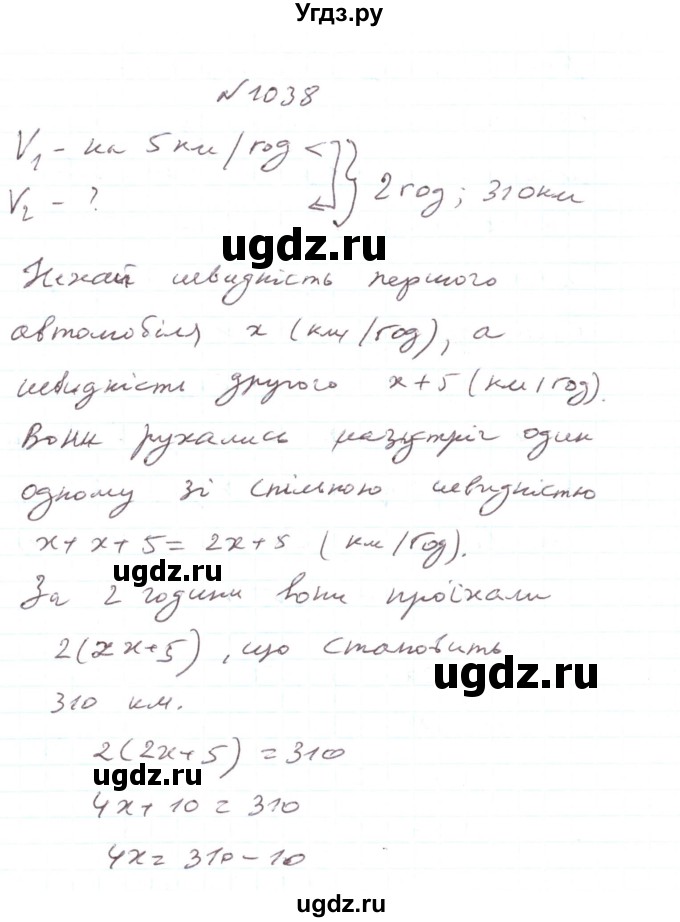 Угдз.ру
№1038
V₁ - на 5 км/год
V₂ - ?
} 2 год; 310 км
ugdz.ru
Нехай швидкість першого
автомобіля x (км/год), а
швидкість другого x+5 (км/год).
Вони рухались назустріч один
одному зі спільною швидкістю
x+x+5= 2x+5 (км/год).
ugdz.ru
За 2 години вони проїхали
2(2x+5), що становить
ugdz.ru
310 км.
2(2x+5) = 310
ugdz.ru
4x+10 = 310
4x= 310-10
ugdz.ru